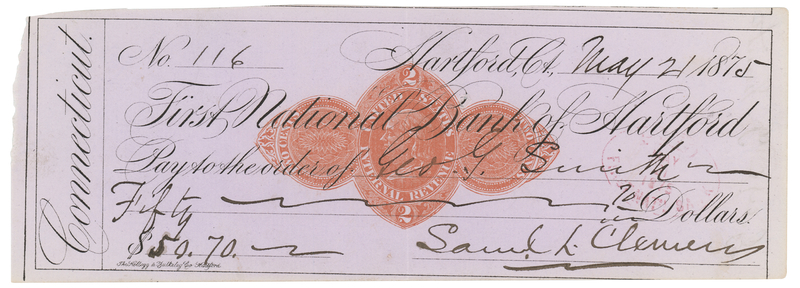 Connecticut.
No. 116
Hartford, Ct., May 21 1875
First National Bank of Hartford
Pay to the order of Geo. G. Smith
Fifty 70/100 Dollars.
$50.70.
Saml. L. Clemens
2
UNITED STATES
INTERNAL REVENUE
2